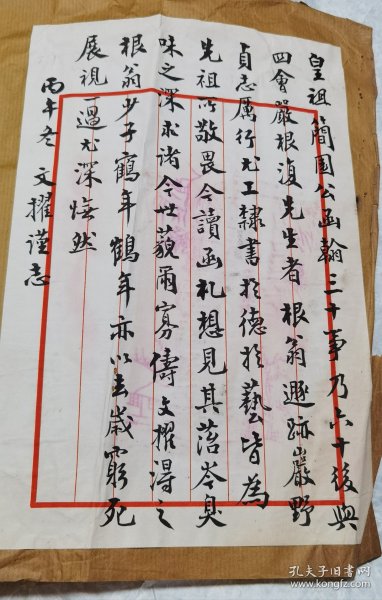 皇祖簡園公函翰三十事乃六十後與
四會嚴根復先生者根翁遯跡巖野
貞志厲行尤工隸書於德於藝皆為
先祖所敬畏今讀函札想見其苔岑臭
味之深求諸今世藐爾寡儔文擢得之
根翁少子鶴年鶴年亦以去歲窮死
展視一過尤深憮然
丙午冬 文擢謹志
孔夫子旧书网